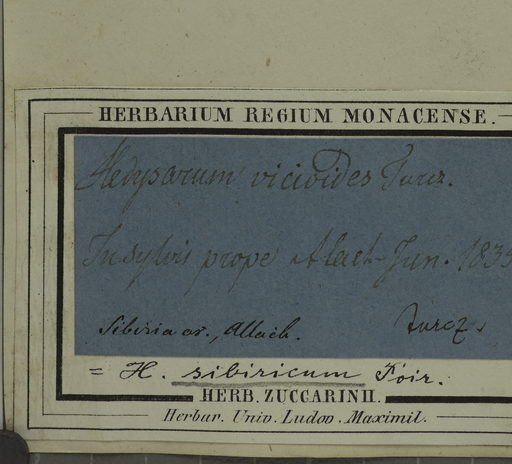 HERBARIUM REGIUM MONACENSE.
Hedysarum vicioides Turcz.
In sylvis prope Alach Jun. 1835
Sibiria or., Allach. Turcz.
= H. sibiricum Poir.
HERB. ZUCCARINII.
Herbar. Univ. Ludov. Maximil.